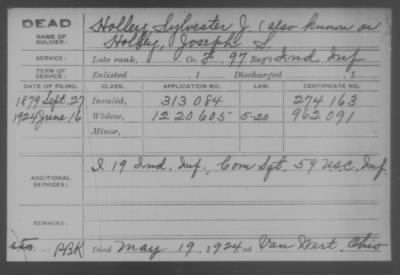 DEAD Holley, Sylvester J. (also known as
NAME OF SOLDIER: Holley, Joseph S.
SERVICE: Late rank, Co. F. 97 Reg't Ind. Inf.
TERM OF SERVICE: Enlisted , 1 Discharged , 1
DATE OF FILING. CLASS. APPLICATION NO. LAW. CERTIFICATE NO.
1879 Sept. 27 Invalid, 313 084 274 163
1924 June 16 Widow, 1220605 5-20 962 091
Minor,
ADDITIONAL SERVICES: I 19 Ind. Inf., Com Sgt. 59 U.S.C. Inf.
REMARKS:
PBK Died May 19, 1924, at Van Wert, Ohio